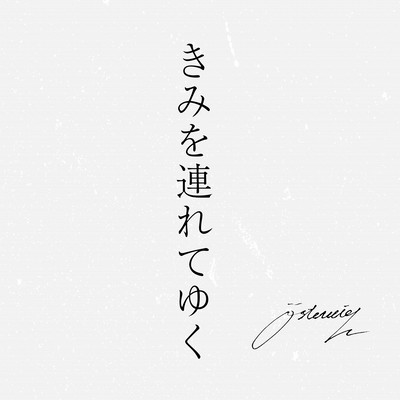 きみを連れてゆく
österreich